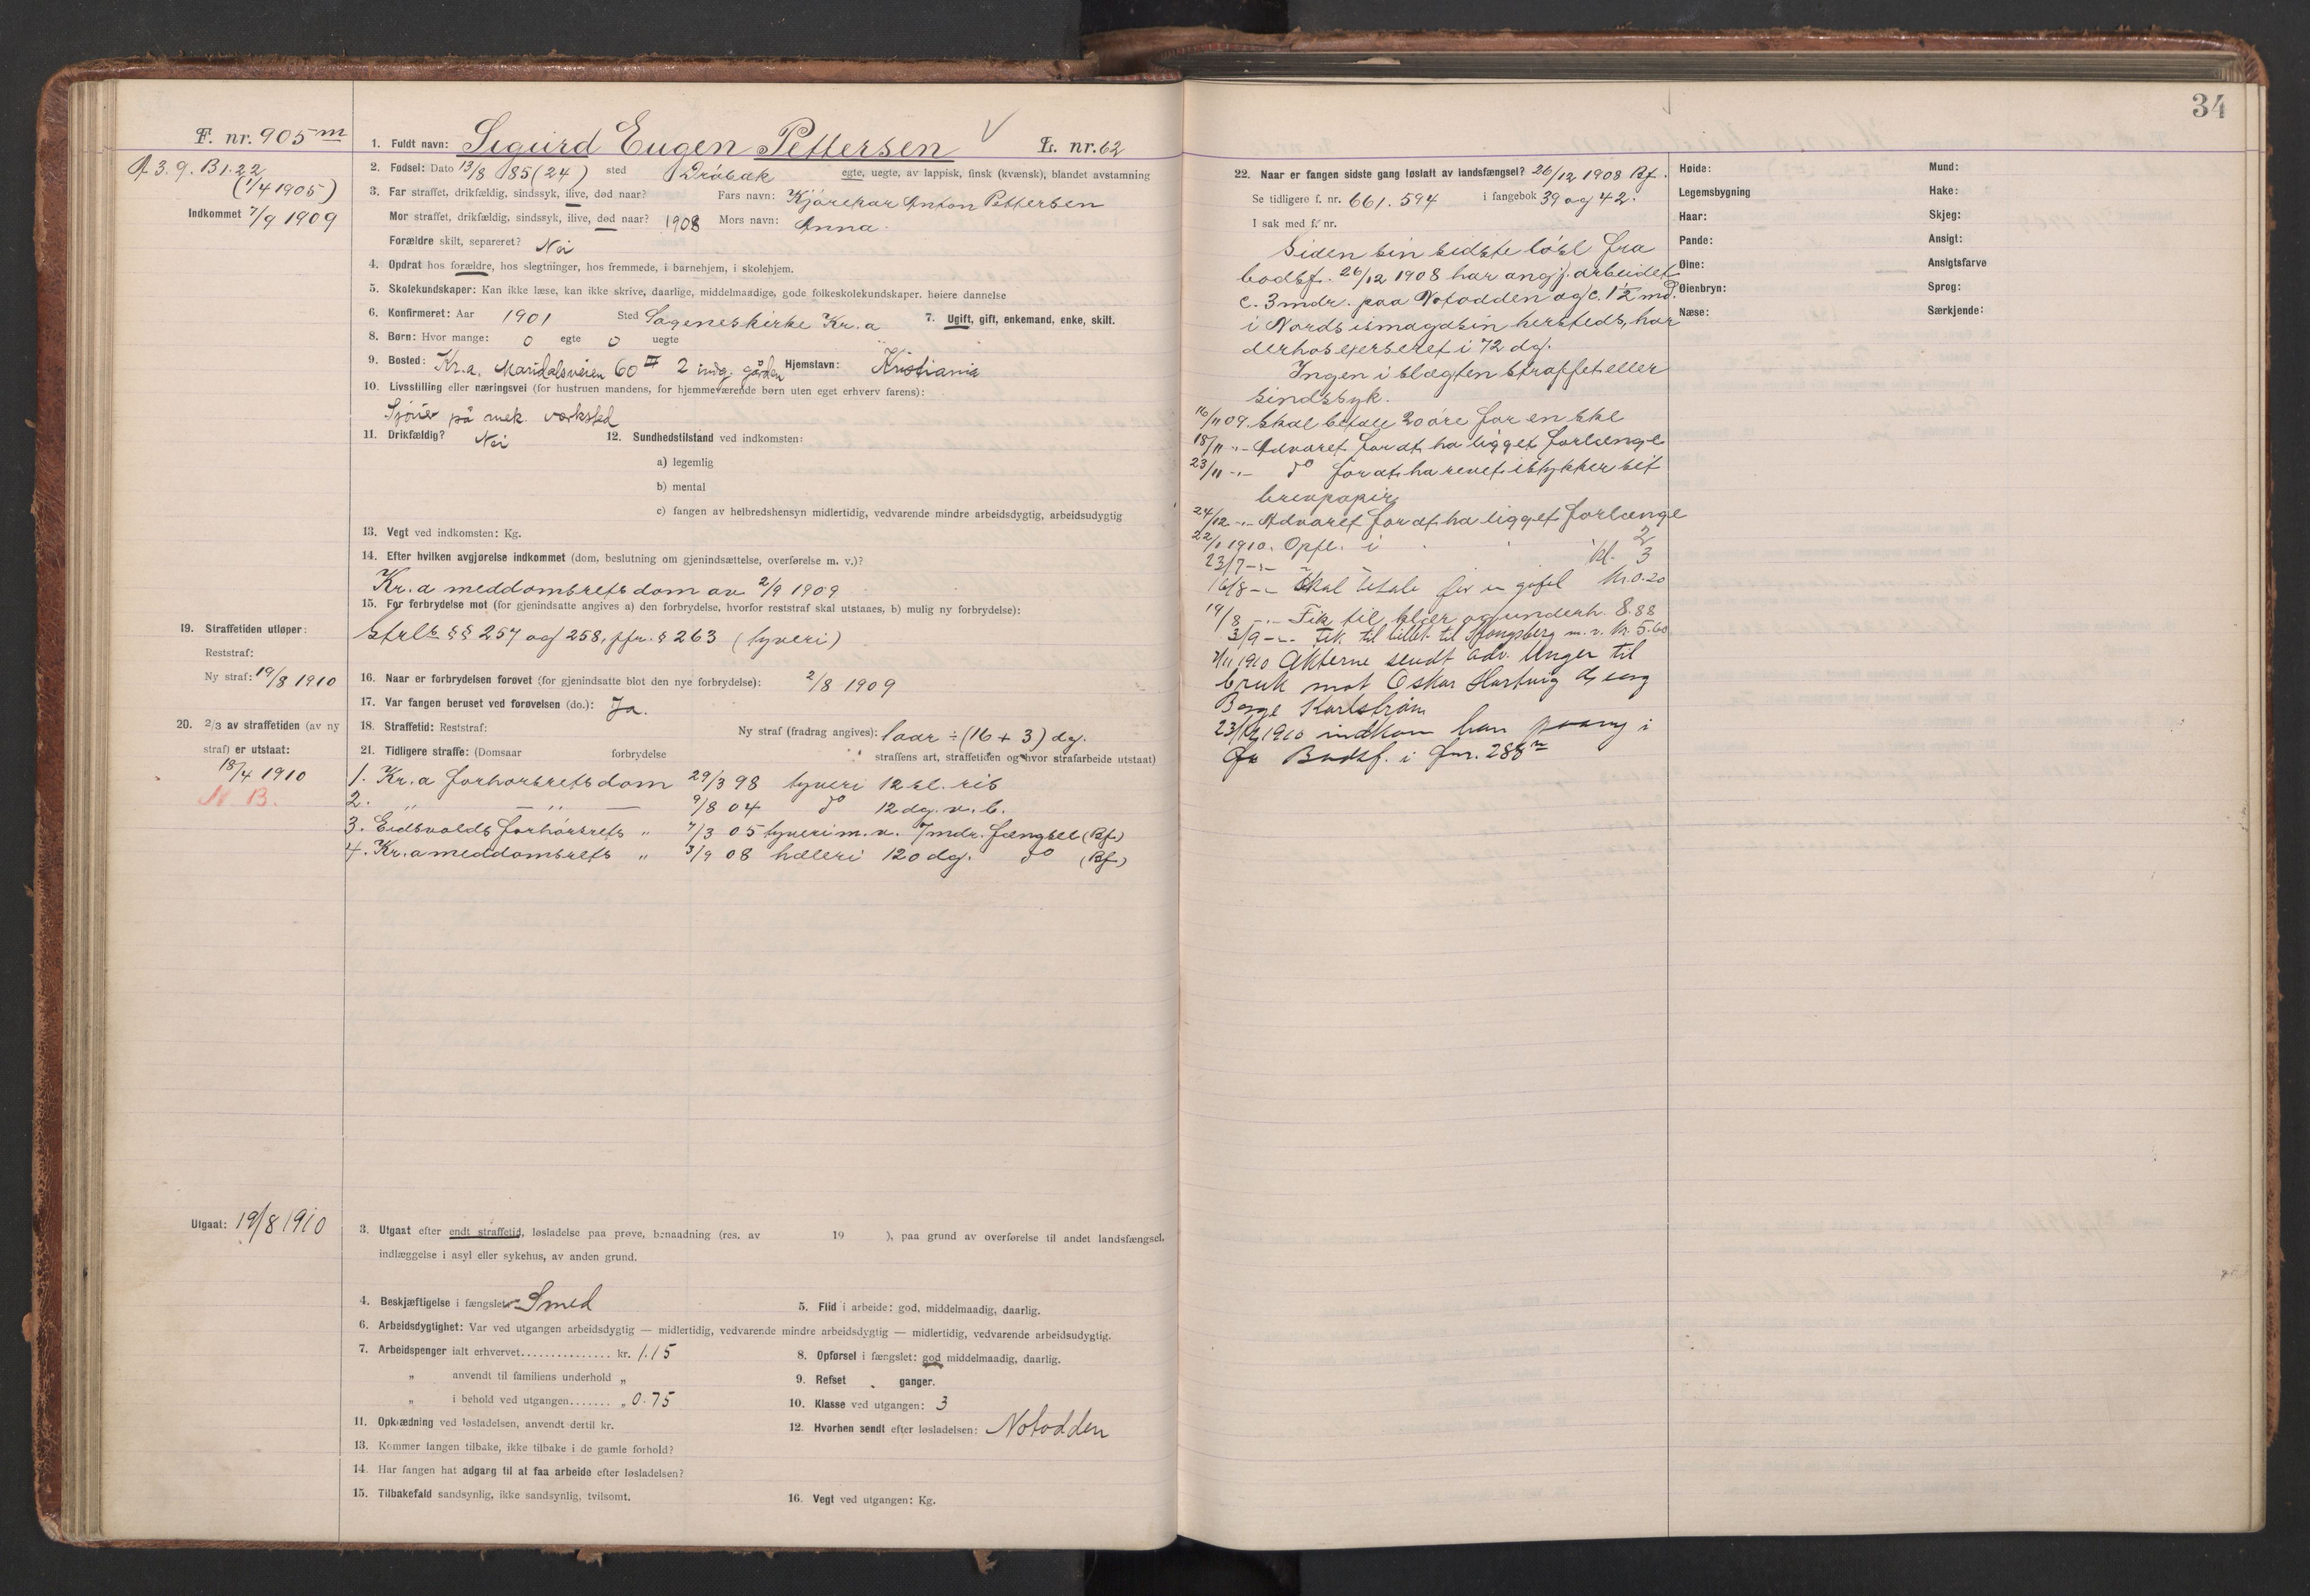 34
F. nr. 905 m
A 3. 9. B 1. 22
(1/4 1905)
Indkommet 7/9 1909
1. Fuldt navn: Sigurd Eugen Pettersen L. nr. 62
2. Fødsel: Dato 13/8 85 (24) sted Drøbak egte, uegte, av lappisk, finsk (kvænsk), blandet avstamning
3. Far straffet, drikfældig, sindssyk, ilive, død naar? Fars navn: Kjørekar Anton Pettersen
Mor straffet, drikfældig, sindssyk, ilive, død naar? 1908 Mors navn: Anna
Forældre skilt, separeret? Nei
4. Opdrat hos forældre, hos slegtninger, hos fremmede, i barnehjem, i skolehjem.
5. Skolekundskaper: Kan ikke læse, kan ikke skrive, daarlige, middelmaadige, gode folkeskolekundskaper. høiere dannelse
6. Konfirmeret: Aar 1901 Sted Sageneskirke Kr.a 7. Ugift, gift, enkemand, enke, skilt.
8. Børn: Hvor mange: 0 egte 0 uegte
9. Bosted: Kr.a. Maridalsveien 60 III 2 indg. gården Hjemstavn: Kristiania
10. Livsstilling eller næringsvei (for hustruen mandens, for hjemmeværende børn uten eget erhverv farens):
på mek. verksted
11. Drikfældig? Nei 12. Sundhedstilstand ved indkomsten:
a) legemlig
b) mental
c) fangen av helbredshensyn midlertidig, vedvarende mindre arbeidsdygtig, arbeidsudygtig
13. Vegt ved indkomsten: Kg.
14. Efter hvilken avgjørelse indkommet (dom, beslutning om gjenindsættelse, overførelse m. v.)?
Kr.a meddomsrets dom av 2/9 1909
15. For forbrydelse mot (for gjenindsatte angives a) den forbrydelse, hvorfor reststraf skal utstaaes, b) mulig ny forbrydelse):
Strl. §§ 257 og 258, jfr. § 263 (tyveri)
19. Straffetiden utløper:
Reststraf:
Ny straf: 19/8 1910
16. Naar er forbrydelsen forøvet (for gjenindsatte blot den nye forbrydelse): 2/8 1909
17. Var fangen beruset ved forøvelsen (do.): Ja.
20. 2/3 av straffetiden (av ny
straf) er utstaat:
18/4 1910
N B.
18. Straffetid: Reststraf: Ny straf (fradrag angives): 1 aar ÷ (16 + 3) dg.
21. Tidligere straffe: (Domsaar forbrydelse straffens art, straffetiden og hvor strafarbeide utstaat)
1. Kr.a forhørsrets dom 29/3 98 tyveri 12 sl. ris
2. " — " — 9/8 04 do 12 dg. v. b.
3. Eidsvolds forhørsrets " 7/3 05 tyveri m. v. 7 mdr. fængsel (Bf.)
4. Kr.a meddomsrets " 3/9 08 hæleri 120 dg. do (Bf.)
Utgaat: 19/8 1910
3. Utgaat efter endt straffetid, løsladelse paa prøve, benaadning (res. av 19 ), paa grund av overførelse til andet landsfængsel,
indlæggelse i asyl eller sykehus, av anden grund.
4. Beskjæftigelse i fængslet: Smed 5. Flid i arbeide: god, middelmaadig, daarlig.
6. Arbeidsdygtighet: Var ved utgangen arbeidsdygtig — midlertidig, vedvarende mindre arbeidsdygtig — midlertidig, vedvarende arbeidsudygtig.
7. Arbeidspenger ialt erhvervet............... kr. 1.15 8. Opførsel i fængslet: god middelmaadig, daarlig.
" anvendt til familiens underhold " 9. Refset ganger.
" i behold ved utgangen....... " 0.75 10. Klasse ved utgangen: 3
11. Opklædning ved løsladelsen, anvendt dertil kr. 12. Hvorhen sendt efter løsladelsen: Notodden
13. Kommer fangen tilbake, ikke tilbake i de gamle forhold?
14. Har fangen hat adgang til at faa arbeide efter løsladelsen?
15. Tilbakefald sandsynlig, ikke sandsynlig, tvilsomt. 16. Vegt ved utgangen: Kg.
22. Naar er fangen sidste gang løslatt av landsfængsel? 26/12 1908 Bf.
Se tidligere f. nr. 661. 594 i fangebok 39 og 42.
I sak med f. nr.
Siden sin sidste løsl fra
bodsf. 26/12 1908 har angj. arbeidet
c. 3 mdr. paa Notodden og c. 1½ md.
i Nords ismagasin hersteds, har
derhos exerseret i 72 dg.
Ingen i slægten straffet eller
sindssyk.
16/11 09. Skal betale 20 øre for en ske
18/11 -"- Advaret for at ha ligget forlænge
23/11 -"- do for at ha revet istykker sit
brevpapir
24/12 -"- Advaret for at ha ligget forlænge
22/1 1910. Opfl. i kl. 2
23/7 -"- 3
16/8 -"- Skal betale for en gafel Kr 0.20
19/8 -"- Fik til klær og underh. 8.88
3/9 -"- Fik til billet til Kongsberg m. v. Kr. 5.60
7/11 1910 Akterne sendt adv. Unger til
bruk mot Oskar Hartvig
Karlstrøm
23/12 1910 indkom han paany i
Bodsf. i fnr. 288 n
Høide:
Legemsbygning
Haar:
Pande:
Øine:
Øienbryn:
Næse:
Mund:
Hake:
Skjeg:
Ansigt:
Ansigtsfarve
Sprog:
Særkjende: